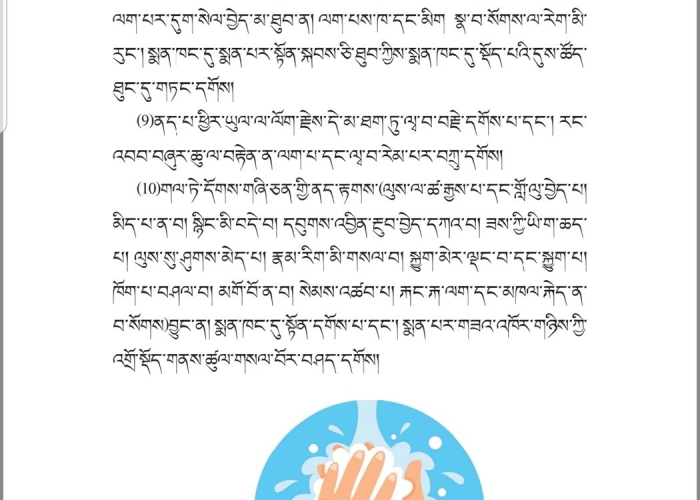 ལག་པར་དུག་སེལ་བྱེད་མ་ཐུབ་ན། ལག་པས་ཁ་དང་མིག སྣ་བ་སོགས་ལ་རེག་མི་
རུང་། སྨན་ཁང་དུ་སྨན་པར་སྟོན་སྐབས་ཅི་ཐུབ་ཀྱིས་སྨན་ཁང་དུ་སྡོད་པའི་དུས་ཚོད་
ཐུང་དུ་གཏང་དགོས།
(9)ནད་པ་ཕྱིར་ཡུལ་ལ་ལོག་རྗེས་དེ་མ་ཐག་ཏུ་ལྭ་བ་བརྗེ་དགོས་པ་དང་། རང་
འབབ་བཞུར་ཆུ་ལ་བརྟེན་ན་ལག་པ་དང་ལྭ་བ་རེམ་པར་བཀྲུ་དགོས།
(10)གལ་ཏེ་དོགས་གཞི་ཅན་གྱི་ནད་རྟགས་(ལུས་ལ་ཚ་རྒྱས་པ་དང་གློ་ལུ་བྱེད་པ།
མིད་པ་ན་བ། སྙིང་མི་བདེ་བ། དབུགས་འབྱིན་རྔུབ་བྱེད་དཀའ་བ། ཟས་ཀྱི་ཡི་ག་ཆད་
པ། ལུས་སུ་ཤུགས་མེད་པ། རྣམ་རིག་མི་གསལ་བ། སྐྱུག་མེར་ལྡང་བ་དང་སྐྱུག་པ།
ཁོག་པ་བཤལ་བ། མགོ་བོ་ན་བ། སེམས་འཚབ་པ། རྐང་རྐ་ལག་དང་མཁལ་རྐེད་ན་
བ་སོགས)བྱུང་ན། སྨན་ཁང་དུ་སྟོན་དགོས་པ་དང་། སྨན་པར་གཟའ་འཁོར་གཉིས་ཀྱི་
འགྲོ་སྡོད་གནས་ཚུལ་གསལ་བོར་བཤད་དགོས།